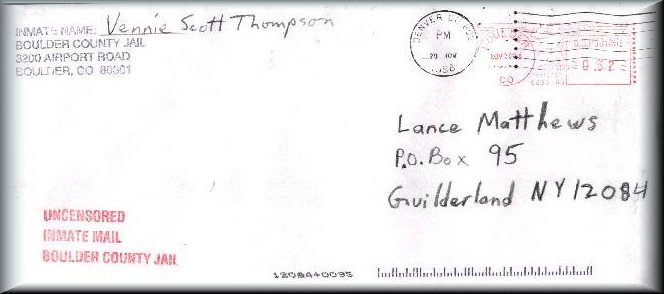 INMATE NAME: Vennie Scott Thompson
BOULDER COUNTY JAIL
3200 AIRPORT ROAD
BOULDER, CO 80301
DENVER CO
PM
20 NOV
1998
CO
Lance Matthews
P.O. Box 95
Guilderland NY 12084
UNCENSORED
INMATE MAIL
BOULDER COUNTY JAIL
12084+0095